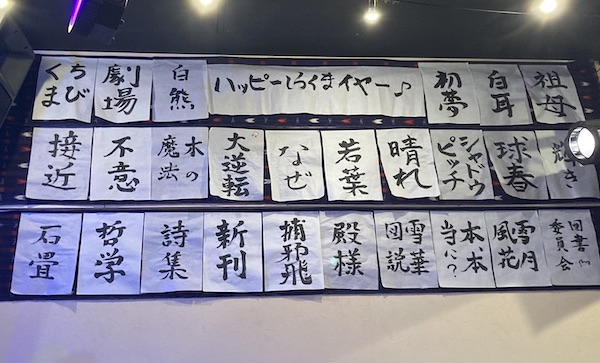 ちびくま
劇場
白熊
ハッピーしろくまイヤー♪
初夢
白耳
祖母
接近
不意
木の魔法
大逆転
なぜ
若葉
晴れ
シャドウピッチ
球春
輝き
石畳
哲学
詩集
新刊
捕邪飛
殿様
雪華図説
本本当に?
雪月風花
図書委員会